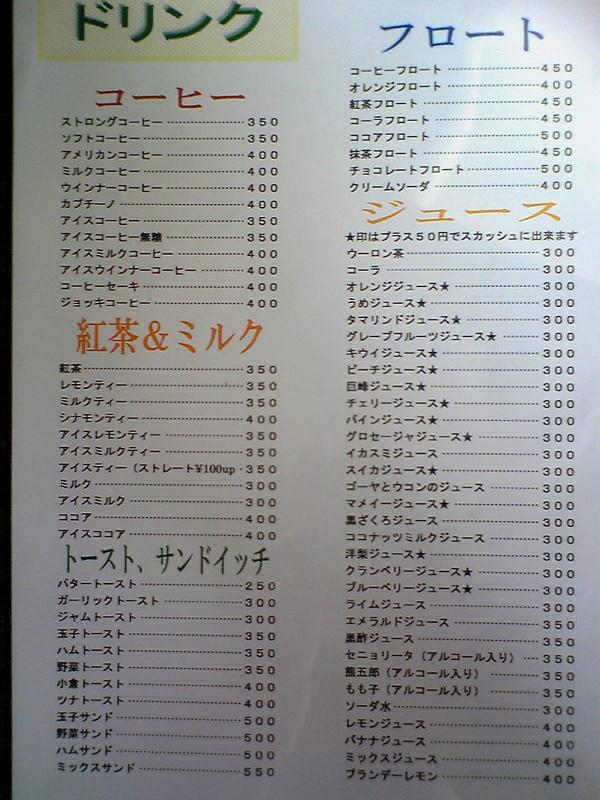 ドリンク
コーヒー
ストロングコーヒー 350
ソフトコーヒー 350
アメリカンコーヒー 400
ミルクコーヒー 400
ウインナーコーヒー 400
カプチーノ 400
アイスコーヒー 350
アイスコーヒー無糖 350
アイスミルクコーヒー 400
アイスウインナーコーヒー 400
コーヒーセーキ 400
ジョッキコーヒー 400
紅茶&ミルク
紅茶 350
レモンティー 350
ミルクティー 350
シナモンティー 400
アイスレモンティー 350
アイスミルクティー 350
アイスティー（ストレート¥100up 350
ミルク 300
アイスミルク 300
ココア 400
アイスココア 400
トースト、サンドイッチ
バタートースト 250
ガーリックトースト 300
ジャムトースト 300
玉子トースト 350
ハムトースト 350
野菜トースト 350
小倉トースト 400
ツナトースト 400
玉子サンド 500
野菜サンド 500
ハムサンド 500
ミックスサンド 550
フロート
コーヒーフロート 450
オレンジフロート 400
紅茶フロート 450
コーラフロート 450
ココアフロート 500
抹茶フロート 450
チョコレートフロート 500
クリームソーダ 400
ジュース
★印はプラス50円でスカッシュに出来ます
ウーロン茶 300
コーラ 300
オレンジジュース★ 300
うめジュース★ 300
タマリンドジュース★ 300
グレープフルーツジュース★ 300
キウイジュース★ 300
ピーチジュース★ 300
巨峰ジュース★ 300
チェリージュース★ 300
パインジュース★ 300
グロセージャジュース★ 300
イカスミジュース 300
スイカジュース★ 300
ゴーヤとウコンのジュース 300
マメイージュース★ 300
黒ざくろジュース 300
ココナッツミルクジュース 300
洋梨ジュース★ 300
クランベリージュース★ 300
ブルーベリージュース★ 300
ライムジュース 300
エメラルドジュース 350
黒酢ジュース 300
セニョリータ（アルコール入り） 350
熊五郎（アルコール入り） 350
もも子（アルコール入り） 350
ソーダ水 300
レモンジュース 400
バナナジュース 400
ミックスジュース 400
ブランデーレモン 400